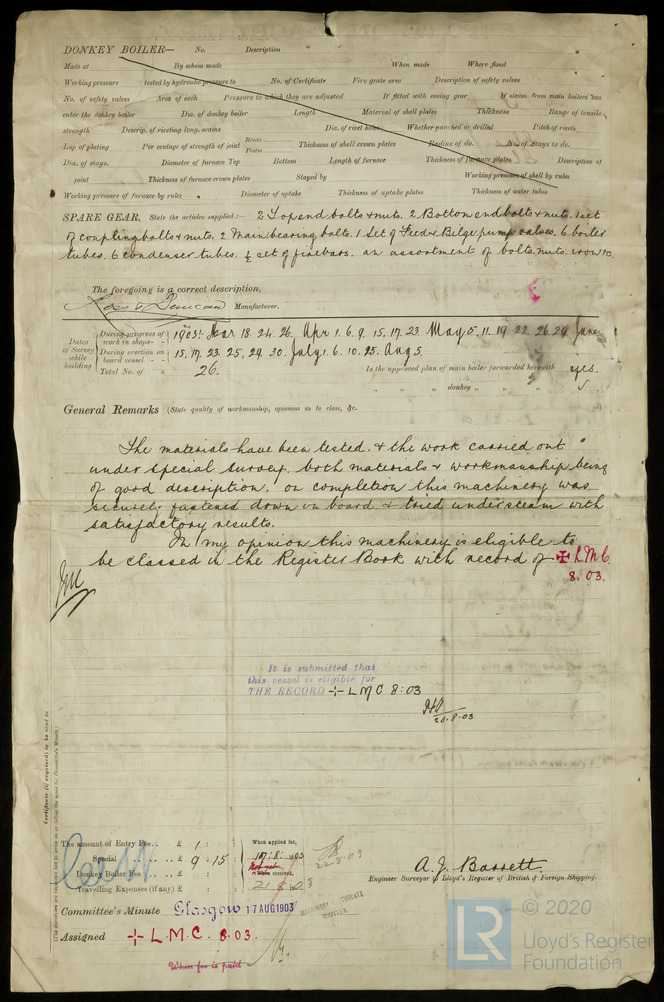 DONKEY BOILER— No. Description
Made at By whom made When made Where fixed
Working pressure tested by hydraulic pressure to No. of Certificate Fire grate area Description of safety valves
No. of safety valves Area of each Pressure to which they are adjusted If fitted with easing gear If steam from main boilers can
enter the donkey boiler Dia. of donkey boiler Length Material of shell plates Thickness Range of tensile
strength Descrip. of riveting long. seams Dia. of rivet holes Whether punched or drilled Pitch of rivets
Lap of plating Per centage of strength of joint Rivets Plates Thickness of shell crown plates Radius of do. No. of Stays to do.
Dia. of stays. Diameter of furnace Top Bottom Length of furnace Thickness of furnace plates Description of
joint Thickness of furnace crown plates Stayed by Working pressure of shell by rules
Working pressure of furnace by rules Diameter of uptake Thickness of uptake plates Thickness of water tubes
SPARE GEAR. State the articles supplied:— 2 Top end bolts & nuts. 2 Bottom end bolts & nuts. 1 set
of coupling bolts & nuts. 2 Main bearing bolts. 1 Set of Feed & Bilge pump valves. 6 boiler
tubes. 6 condenser tubes. ½ set of firebars. an assortment of bolts. nuts. iron &c.
The foregoing is a correct description,
Ross & Duncan Manufacturer.
Dates of Survey while building
During progress of work in shops - - 1903:- Mar 18. 24. 26. Apr 1. 6. 9. 15. 17. 23. May 5. 11. 19. 22. 26. 29. June
During erection on board vessel - - 15. 17. 23. 25. 29. 30. July 1. 6. 10. 25. Aug 5.
Total No. of 26. Is the approved plan of main boiler forwarded herewith yes.
" " " donkey " " "
General Remarks (State quality of workmanship, opinions as to class, &c.
The materials have been tested, & the work carried out
under special survey. both materials & workmanship being
of good description. on completion this machinery was
securely fastened down on board & tried under steam with
satisfactory results.
In my opinion this machinery is eligible to
be classed in the Register Book with record of ✠ L.M.C.
8.03.
It is submitted that
this vessel is eligible for
THE RECORD + L M C 8:03
20.8.03
Certificate (if required) to be sent to
The amount of Entry Fee.. £ 1 : :
Special .. £ 9 : 15 :
Donkey Boiler Fee .. £ : :
Travelling Expenses (if any) £ : :
When applied for,
17.8.1903
When received,
21.8.03
22.8.03
MACHINERY CERTIFICATE
WRITTEN
A. J. Barrett.
Engineer Surveyor to Lloyd's Register of British & Foreign Shipping.
Committee's Minute Glasgow 17 AUG 1903
Assigned + L.M.C. 8.03.
When fee is paid
LR © 2020
Lloyd's Register
Foundation